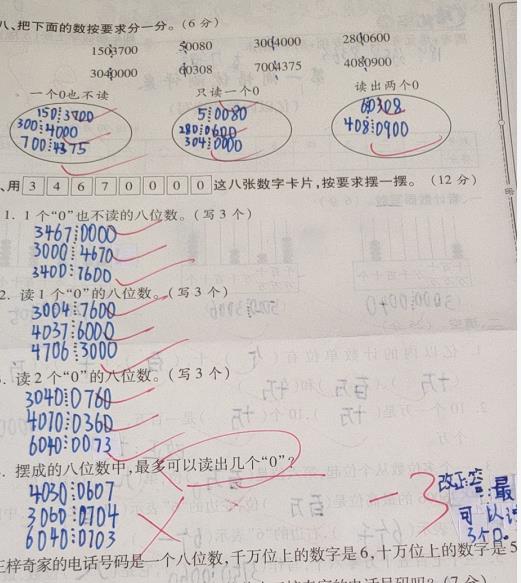 八、把下面的数按要求分一分。(6 分)
1503700 50080 3004000 2800600
3040000 60308 7004375 4080900
一个0也不读 只读一个0 读出两个0
150┊3700 5┊0080 60308
300┊4000 280┊0600 408┊0900
700┊4375 304┊0000
、用 3 4 6 7 0 0 0 0 这八张数字卡片,按要求摆一摆。(12 分)
1. 1 个“0”也不读的八位数。(写 3 个)
3467┊0000
3000┊4670
3400┊7600
2. 读 1 个“0”的八位数。(写 3 个)
3004┊7600
4037┊6000
4706┊3000
. 读 2 个“0”的八位数。(写 3 个)
3040┊0760
4070┊0360
6040┊0073
. 摆成的八位数中,最多可以读出几个“0”?
4030┊0607
3060┊0704
6040┊0703
改正:答:最
可以读
3个0。
梓奇家的电话号码是一个八位数,千万位上的数字是 6,十万位上的数字是 5